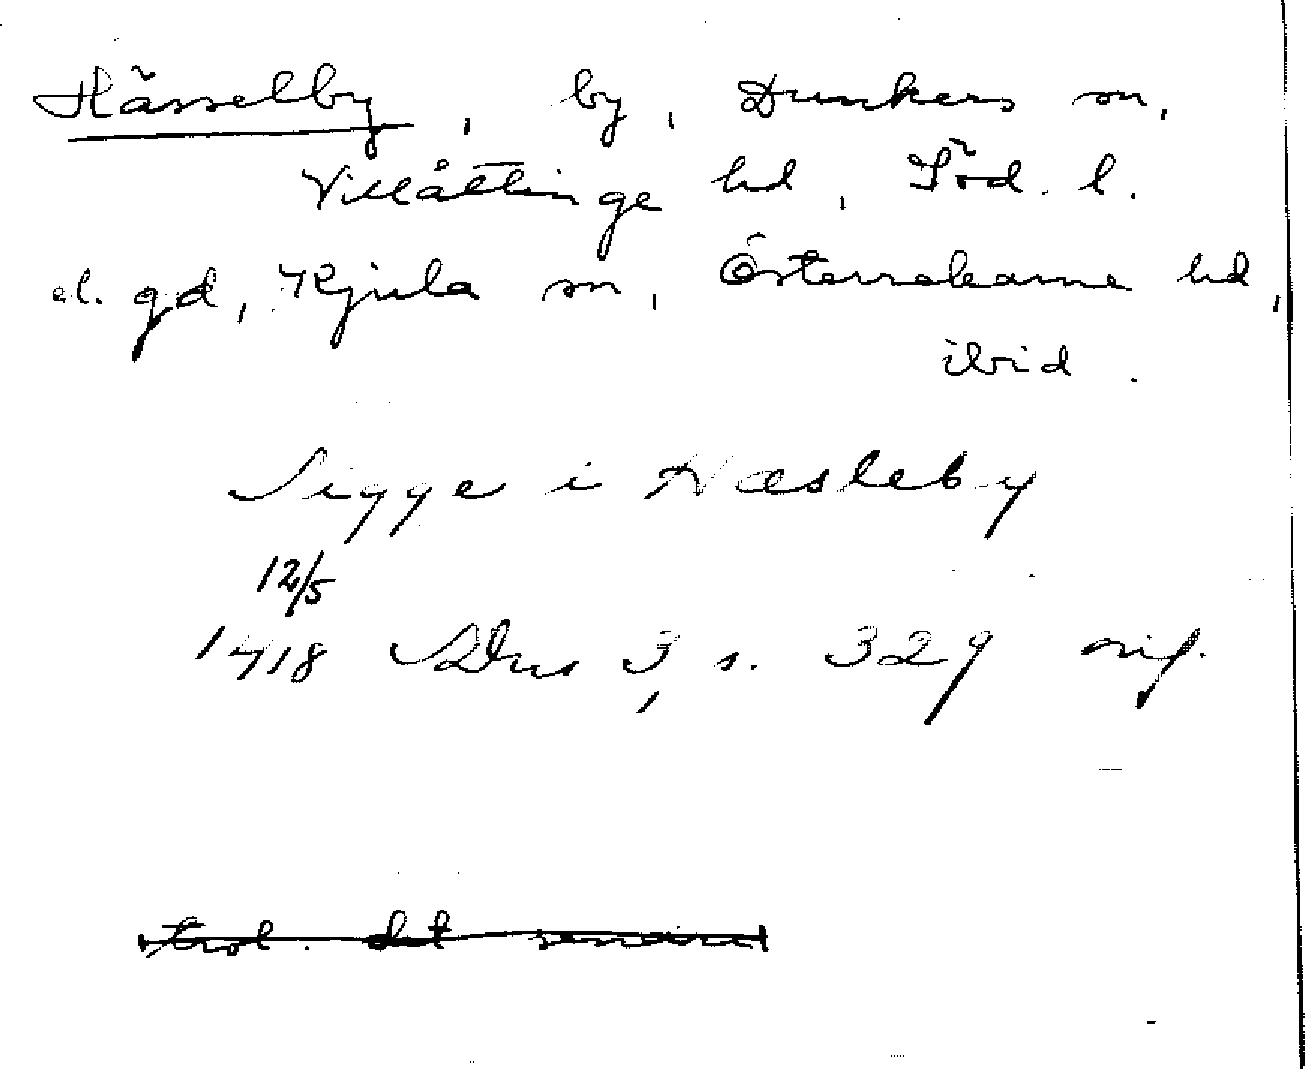 Hässelby, by, Dunkers sn,
Villåttinge hd, Söd. l.
el. gd, Kjula sn, Österrekarne hd,
ibid.
Sigge i Hæsleby
12/5
1418 SDns 3, s. 329 orig.
trol. det senare